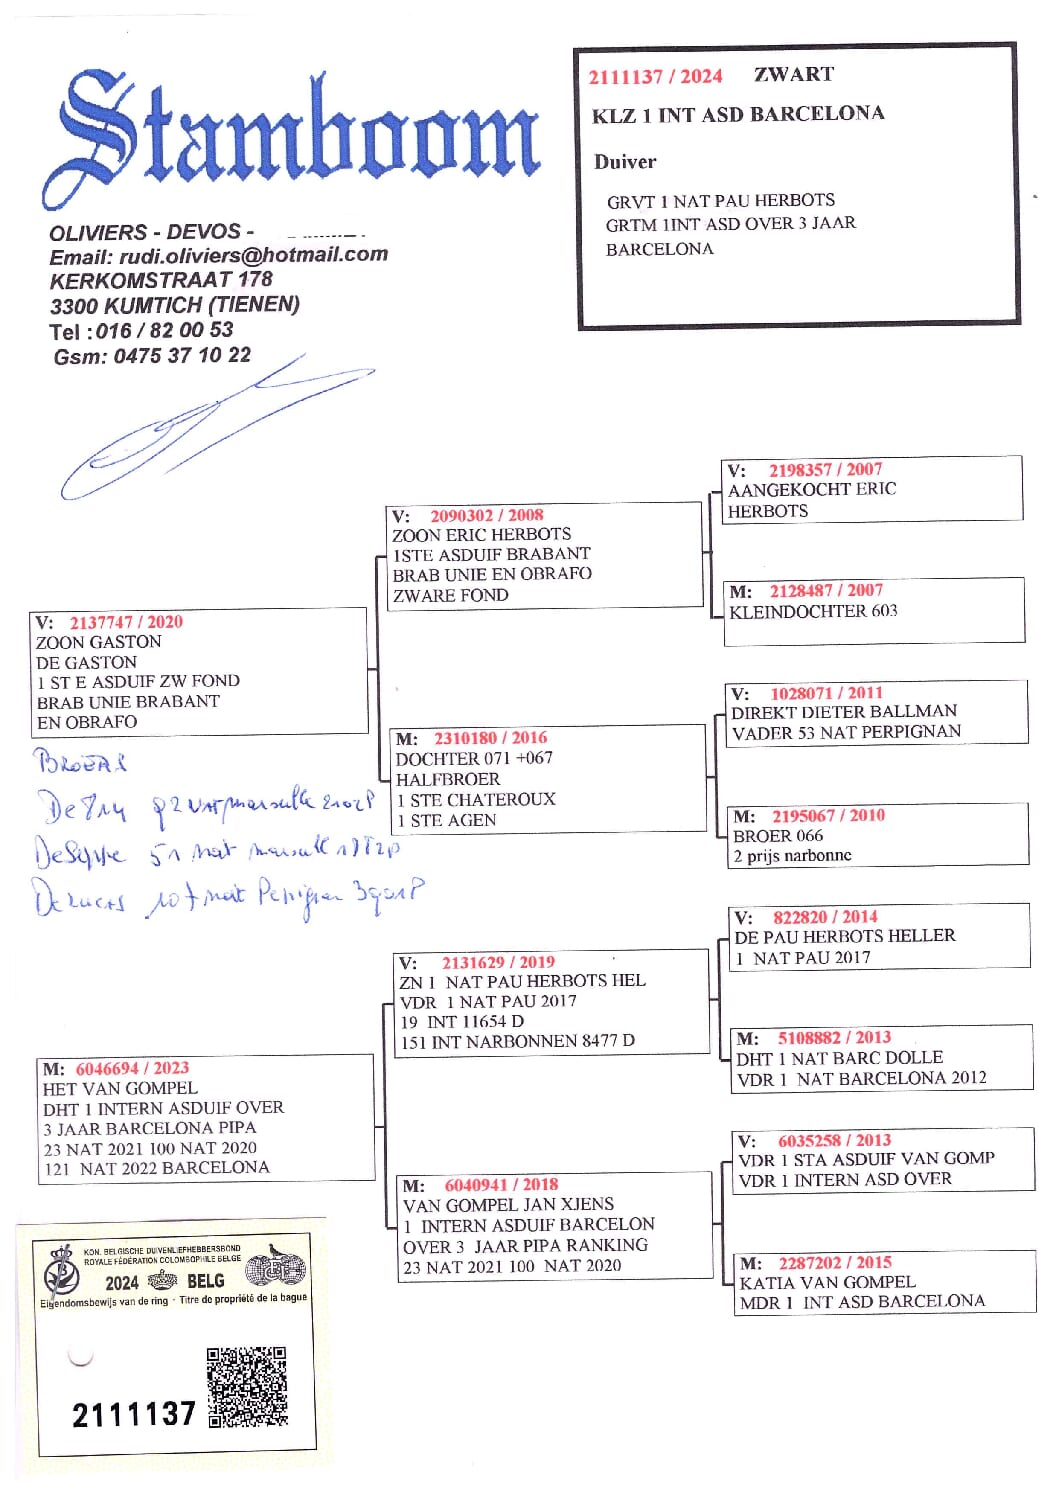 Stamboom
OLIVIERS - DEVOS -
Email: rudi.oliviers@hotmail.com
KERKOMSTRAAT 178
3300 KUMTICH (TIENEN)
Tel :016 / 82 00 53
Gsm: 0475 37 10 22
2111137 / 2024 ZWART
KLZ 1 INT ASD BARCELONA
Duiver
GRVT 1 NAT PAU HERBOTS
GRTM 1INT ASD OVER 3 JAAR
BARCELONA
V: 2137747 / 2020
ZOON GASTON
DE GASTON
1 ST E ASDUIF ZW FOND
BRAB UNIE BRABANT
EN OBRAFO
V: 2090302 / 2008
ZOON ERIC HERBOTS
1STE ASDUIF BRABANT
BRAB UNIE EN OBRAFO
ZWARE FOND
V: 2198357 / 2007
AANGEKOCHT ERIC
HERBOTS
M: 2128487 / 2007
KLEINDOCHTER 603
M: 2310180 / 2016
DOCHTER 071 +067
HALFBROER
1 STE CHATEROUX
1 STE AGEN
V: 1028071 / 2011
DIREKT DIETER BALLMAN
VADER 53 NAT PERPIGNAN
M: 2195067 / 2010
BROER 066
2 prijs narbonne
De
51 Nat
Nat
M: 6046694 / 2023
HET VAN GOMPEL
DHT 1 INTERN ASDUIF OVER
3 JAAR BARCELONA PIPA
23 NAT 2021 100 NAT 2020
121 NAT 2022 BARCELONA
V: 2131629 / 2019
ZN 1 NAT PAU HERBOTS HEL
VDR 1 NAT PAU 2017
19 INT 11654 D
151 INT NARBONNEN 8477 D
V: 822820 / 2014
DE PAU HERBOTS HELLER
1 NAT PAU 2017
M: 5108882 / 2013
DHT 1 NAT BARC DOLLE
VDR 1 NAT BARCELONA 2012
M: 6040941 / 2018
VAN GOMPEL JAN XJENS
1 INTERN ASDUIF BARCELON
OVER 3 JAAR PIPA RANKING
23 NAT 2021 100 NAT 2020
V: 6035258 / 2013
VDR 1 STA ASDUIF VAN GOMP
VDR 1 INTERN ASD OVER
M: 2287202 / 2015
KATIA VAN GOMPEL
MDR 1 INT ASD BARCELONA
KON. BELGISCHE DUIVENLIEFHEBBERSBOND
ROYALE FÉDÉRATION COLOMBOPHILE BELGE
2024 BELG
Eigendomsbewijs van de ring - Titre de propriété de la bague
2111137